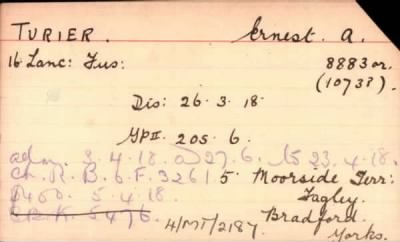 TURIER. Ernest. A.
16 Lanc: Fus: 8883 or.
(10733)
Dis: 26.3.18.
GP II. 205. 6.
adm. 3.4.18. 27.6. 23.4.18.
Ch. R. B. 6. F. 3261 5 Moorside Terr:
D400. 5.4.18. Fagley.
5476 Bradford.
4/MT/2187. Yorks.